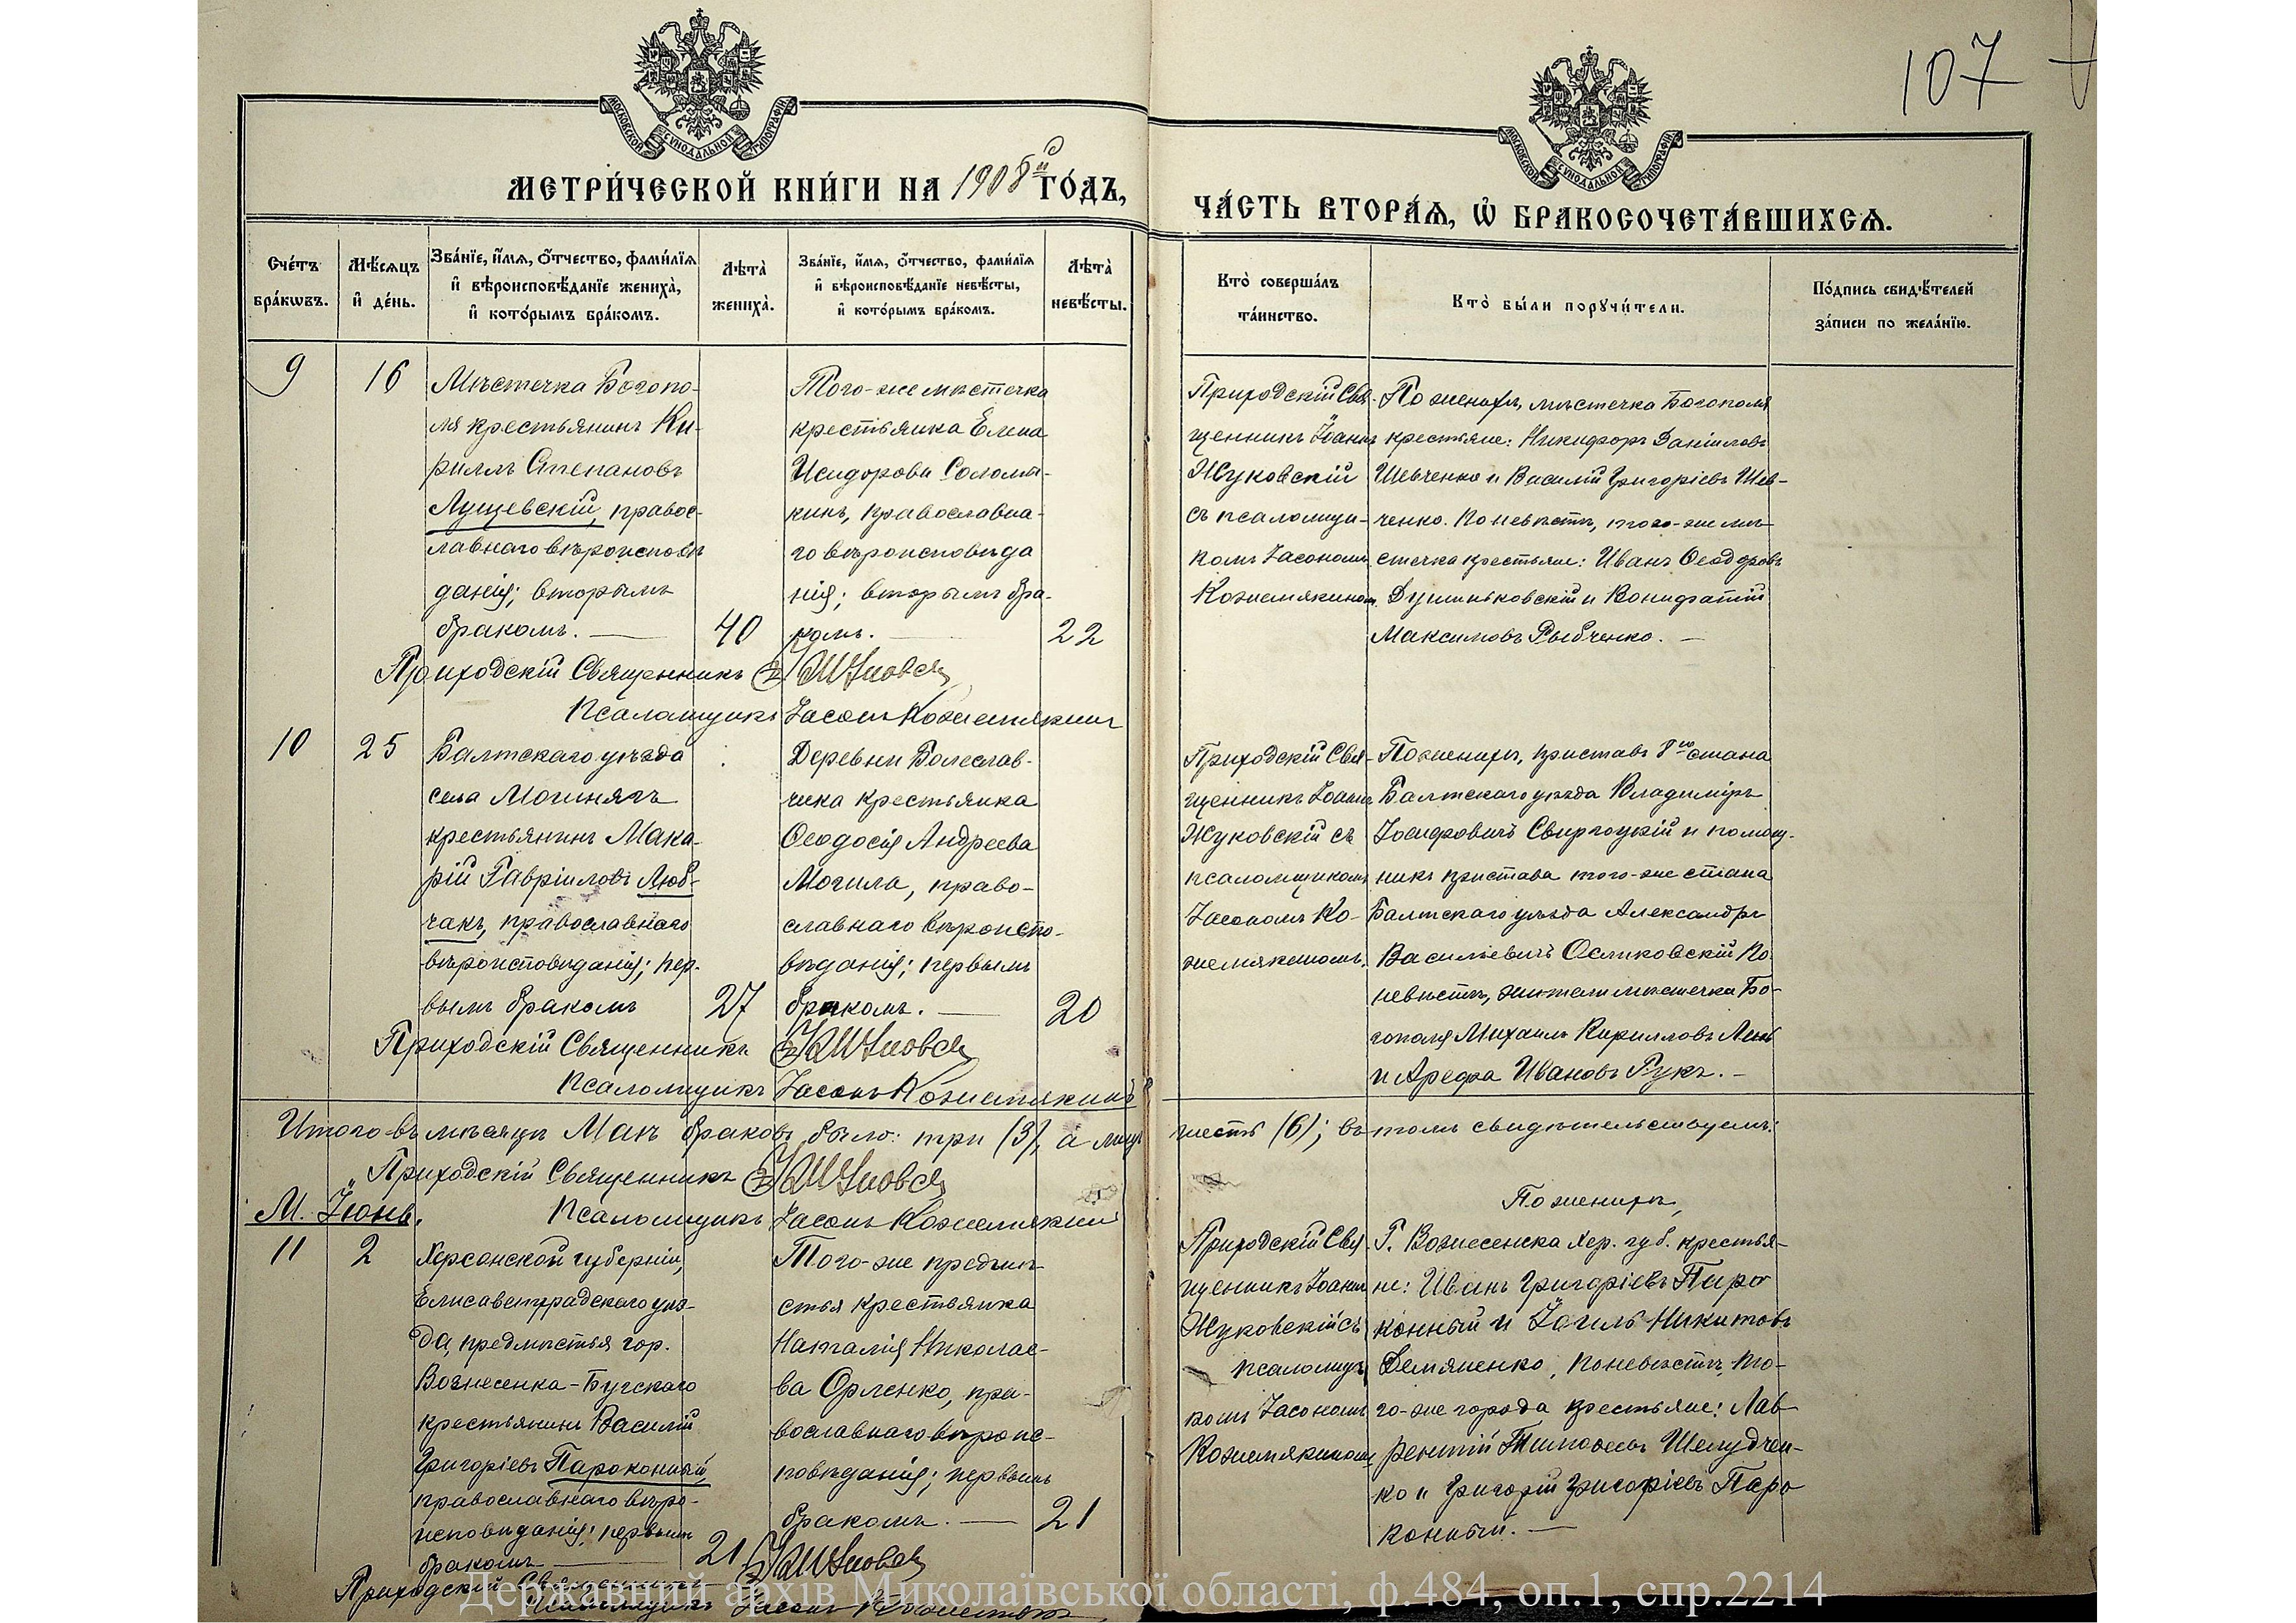 107
МОСКОВСКОЙ СѴНОДАЛЬНОЙ ТИПОГРАФІИ
МОСКОВСКОЙ СѴНОДАЛЬНОЙ ТИПОГРАФІИ
МЕТРИ́ЧЕСКОЙ КНИ́ГИ НА 1908й ГО́ДЪ,
ЧА́СТЬ ВТОРА́Ѧ, Ѡ҆ БРАКОСОЧЕТА́ВШИХСѦ.
Сче́тъ бра́кѡвъ.
Мѣ́сѧцъ и҆ де́нь.
Зва́нїе, и҆́мѧ, ѻ҆́тчество, фами́лїѧ
и҆ вѣроисповѣ́данїе жениха̀,
и҆ кото́рымъ бра́комъ.
Лѣта̀ жениха̀.
Зва́нїе, и҆́мѧ, ѻ҆́тчество, фами́лїѧ
и҆ вѣроисповѣ́данїе невѣ́сты,
и҆ кото́рымъ бра́комъ.
Лѣта̀ невѣ́сты.
Кто̀ соверша́лъ
та́инство.
Кто̀ бы́ли порꙋчи́тели.
По́дпись свидѣ́телей
за́писи по жела́нїю.
9
16
Мѣстечка Богопо-
ля крестьянинъ Ки-
риллъ Степановъ
Лущевскій, правос-
лавнаго вѣроисповѣ
данія; вторымъ
бракомъ.
40
Того-же мѣстечка
крестьянка Елена
Исидорова Соломы-
кинъ, православна-
го вѣроисповѣда
нія; вторымъ бра-
комъ.
22
Приходскій Свя-
щенникъ Іоаннъ
Жуковскій
съ псаломщи-
комъ Іасономъ
Кожемякином.
По жениху, мѣстечка Богополя
крестьяне: Никифоръ Даніиловъ
Шевченко и Василій Григоріевъ Шев-
ченко. По невѣстѣ, того-же мѣ-
стечка крестьяне: Иванъ Ѳеодоровъ
Думиньковскій и Вонифатій
Максимовъ Рыбченко.
Приходскій Священникъ
Псаломщикъ Іасонъ Кожемякинъ
10
25
Балтскаго уѣзда
села Могиляхъ
крестьянинъ Мака-
рій Гавріиловъ Люб-
чакъ, православнаго
вѣроисповѣданія; пер-
вымъ бракомъ
27
Деревни Болеслав-
чика крестьянка
Ѳеодосія Андреева
Могила, право-
славнаго вѣроиспо-
вѣданія; первымъ
бракомъ.
20
Приходскій Свя-
щенникъ Іоаннъ
Жуковскій съ
псаломщикомъ
Іасономъ Ко-
жемякиномъ.
По жениху, приставъ 8го стана
Балтскаго уѣзда Владиміръ
Іосифовичъ Свиргоцкій и помощ-
никъ пристава того-же стана
Балтскаго уѣзда Александръ
Васильевичъ Осликовскій По
невѣстѣ, жители мѣстечка Бо-
гополя Михаилъ Кирилловъ Лень
и Арефа Ивановъ Рукъ.
Приходскій Священникъ
Псаломщикъ Іасонъ Кожемякинъ
Итого въ мѣсяцѣ Маѣ браковъ было: три (3), а лицъ шесть (6); въ томъ свидѣтельствуемъ:
Приходскій Священникъ
Псаломщикъ Іасонъ Кожемякинъ
М. Іюнь.
11
2
Херсонской губерніи,
Елисаветградскаго уѣз-
да, предмѣстья гор.
Вознесенка-Бугскаго
крестьянинъ Василій
Григоріевъ Пароконный,
православнаго вѣро-
исповѣданія; первымъ
бракомъ
21
Того-же предмѣ-
стья крестьянка
Наталія Николае-
ва Орленко, пра-
вославнаго вѣроис-
повѣданія; первымъ
бракомъ.
21
Приходскій Свя-
щенникъ Іоаннъ
Жуковскій съ
псаломщи
комъ Іасономъ
Кожемякиномъ
По жениху,
Г. Вознесенска Хер. губ. крестья-
не: Иванъ Григоріевъ Паро
конный и Іоиль Никитовъ
Демяненко, По невѣстѣ, то-
го-же города крестьяне: Лав-
рентій Тимоѳеевъ Шелудчен-
ко и Григорій Григоріевъ Паро
конный.
Приходскій Священникъ
Псаломщикъ Іасонъ Кожемякинъ
Державний архів Миколаївської області, ф.484, оп.1, спр.2214